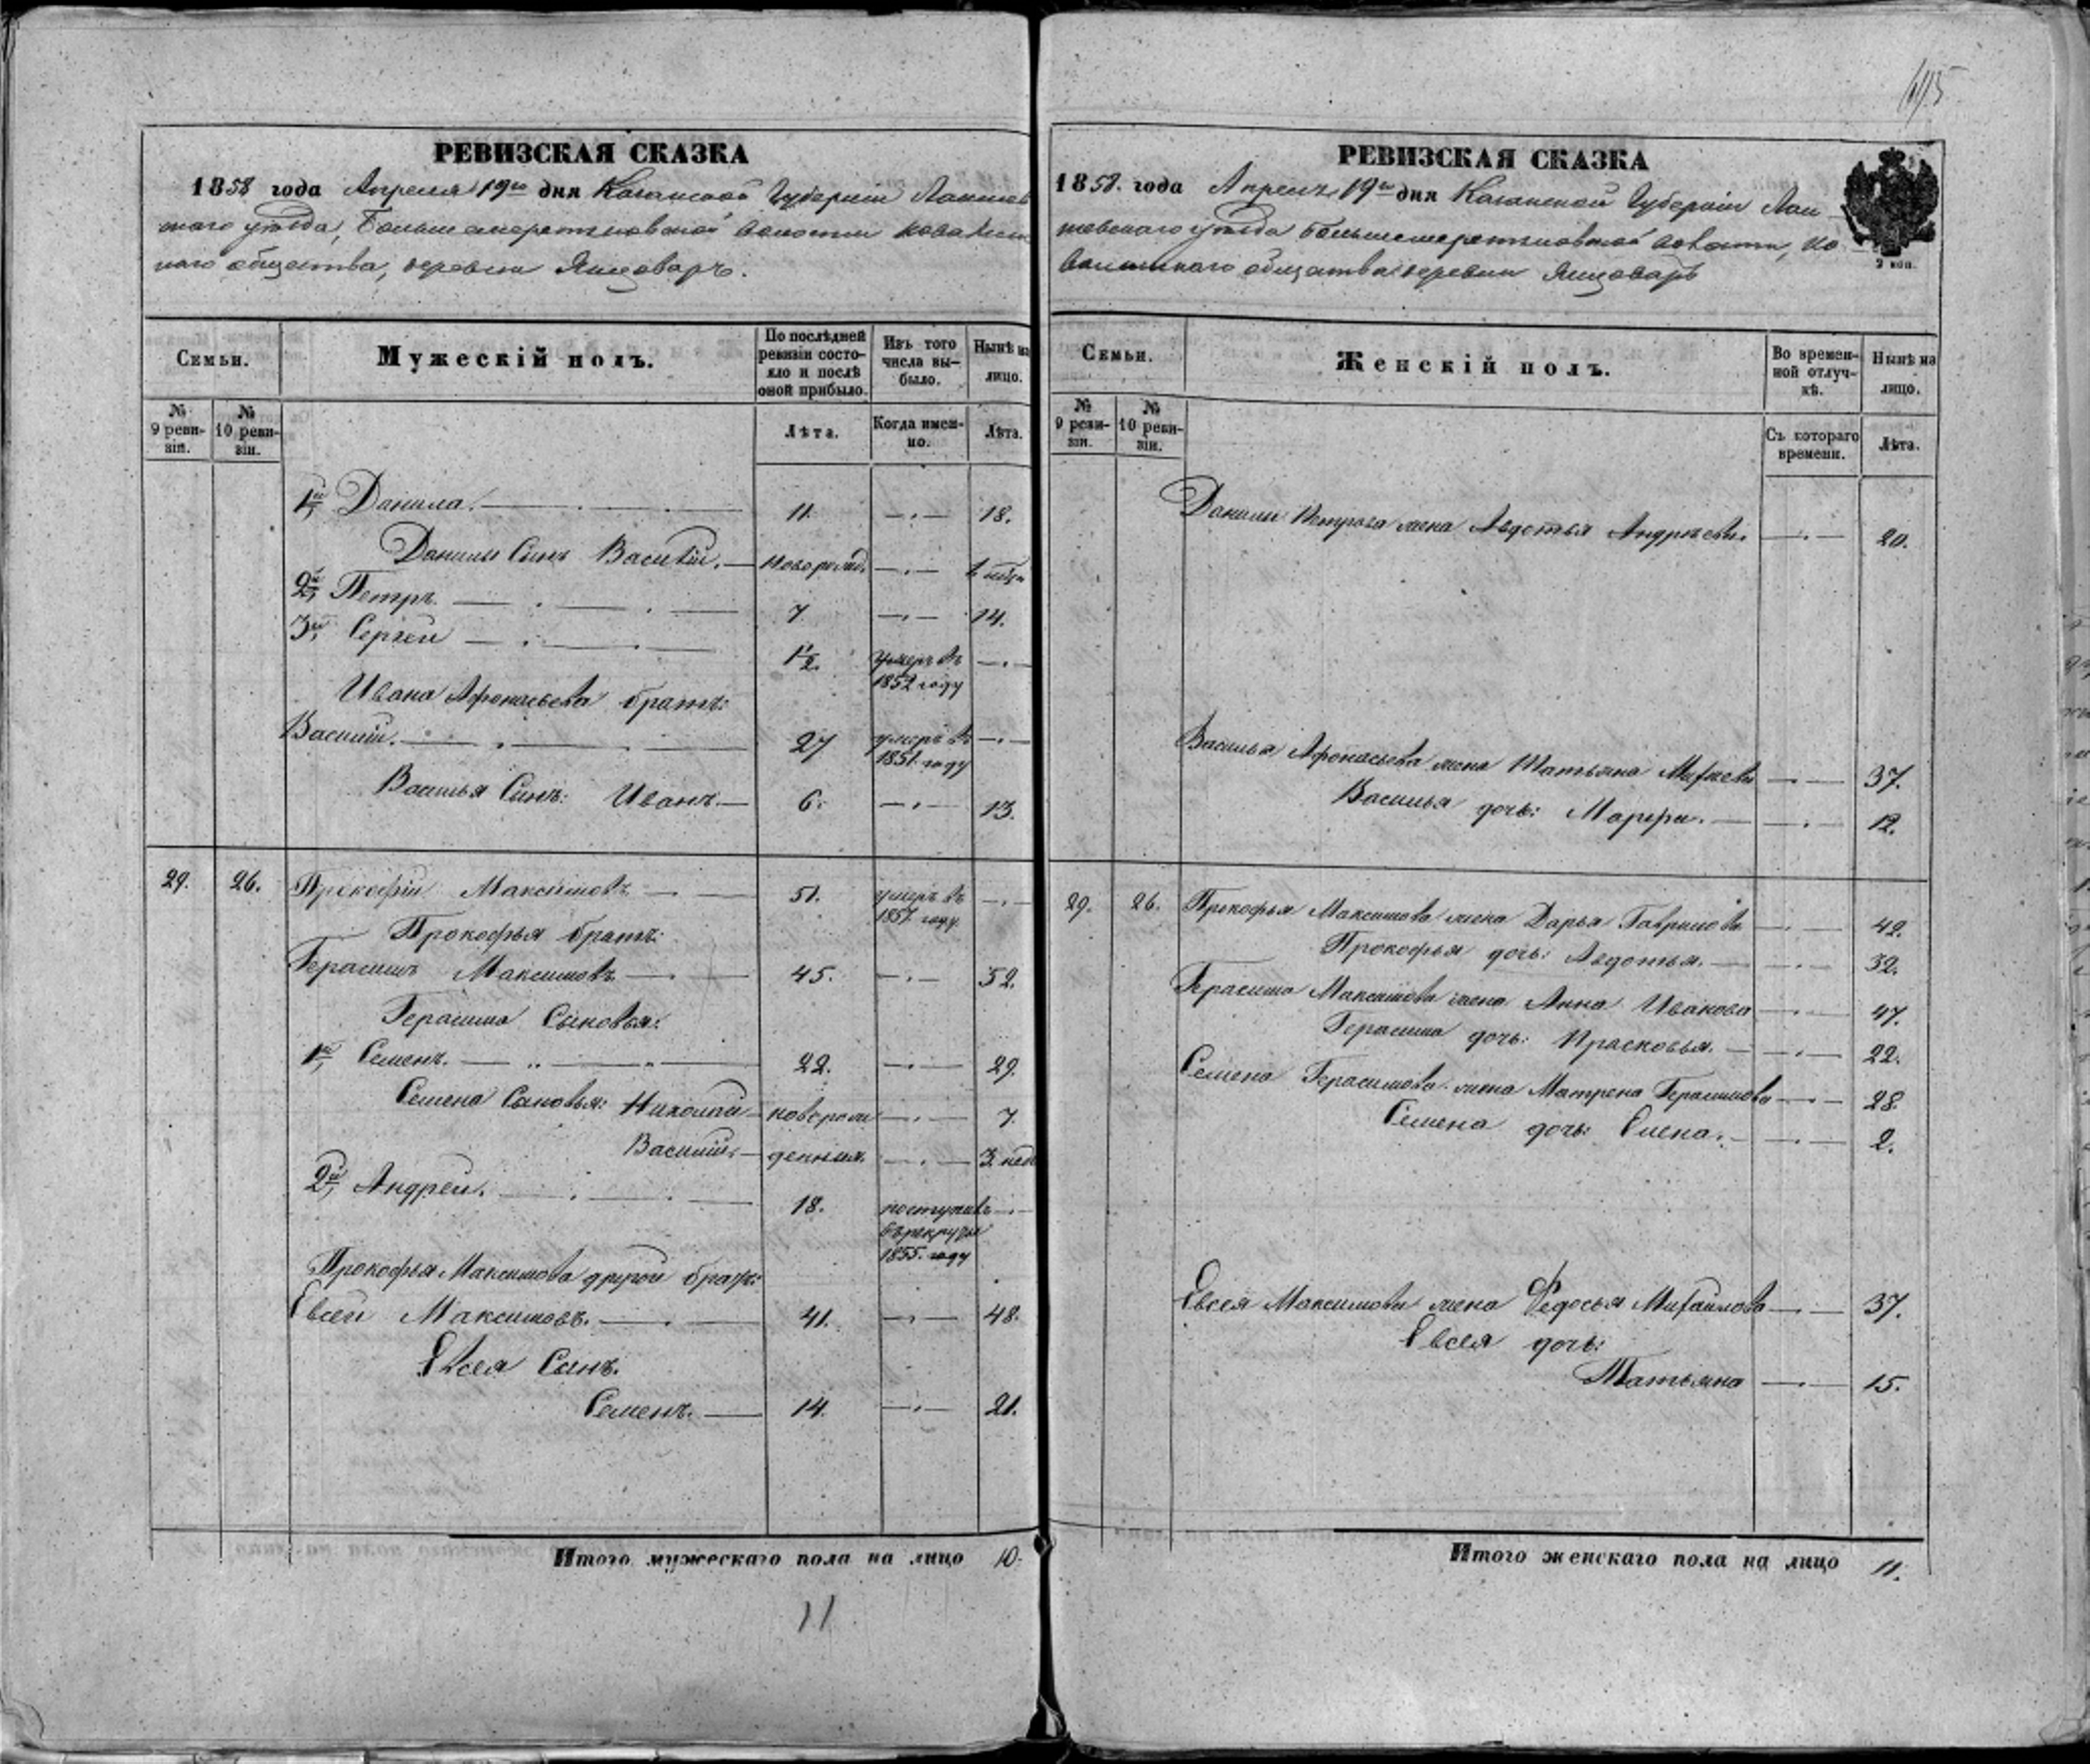 РЕВИЗСКАЯ СКАЗКА
1858 года Апреля 19го дня Казанской Губерніи Лаишев
скаго уѣзда, Большемеретьковской волости
наго общества, деревни Янцоваръ.
Семьи.
Мужескій полъ.
По послѣдней ревизіи состояло и послѣ оной прибыло.
Изъ того числа выбыло.
Нынѣ на лицо.
№ 9 ревизіи.
№ 10 ревизіи.
Лѣта.
Когда именно.
Лѣта.
1й, Данила. 11. 18.
Данилы Сынъ Василій. новорожд.
2й, Петръ 7 14.
3й, Сергей 1½. умеръ въ 1852 году
Ивана Афонасьева братъ:
Василий. 27 умеръ въ 1851. году
Василья Сынъ: Иванъ 6. 13.
29. 26. Прокофій Максимовъ 51. умеръ въ 1857. году
Прокофья братъ:
Герасимъ Максимовъ 45. 52.
Герасима Сыновья:
1й, Семенъ. 22. 29.
Семена Сыновья: Николай новорож 7.
Василий. денныя. 3. нед
2й, Андрей. 18. поступилъ въ рекруты 1855. году
Прокофья Максимова другой братъ:
Евсей Максимовъ. 41. 48.
Евсея Сынъ.
Семенъ. 14. 21.
Итого мужескаго пола на лицо 10.
11
РЕВИЗСКАЯ СКАЗКА
1858. года Апреля 19го дня Казанской Губерніи Лаи
шевскаго уѣзда Большемеретьковской волости, Ко
общества деревни Янцоваръ
2 коп.
Семьи.
Женскій полъ.
Во временной отлучкѣ.
Нынѣ на лицо.
№ 9 ревизіи.
№ 10 ревизіи.
Съ котораго времени.
Лѣта.
Данилы Петрова жена Авдотья Андрѣева. 20.
Василья Афонасьева жена Татьяна 37.
Василья дочь: Марфа. 12.
29. 26. Прокофья Максимова жена Дарья Гаврилова 42.
Прокофья дочь: Авдотья. 32.
Герасима Максимова жена Анна Иванова 47.
Герасима дочь: Прасковья. 22.
Семена Герасимова жена Матрена Герасимова 28.
Семена дочь: Елена. 2.
Евсея Максимова жена Федосья Михайлова 37.
Евсея дочь:
Татьяна 15.
Итого женскаго пола на лицо 11.